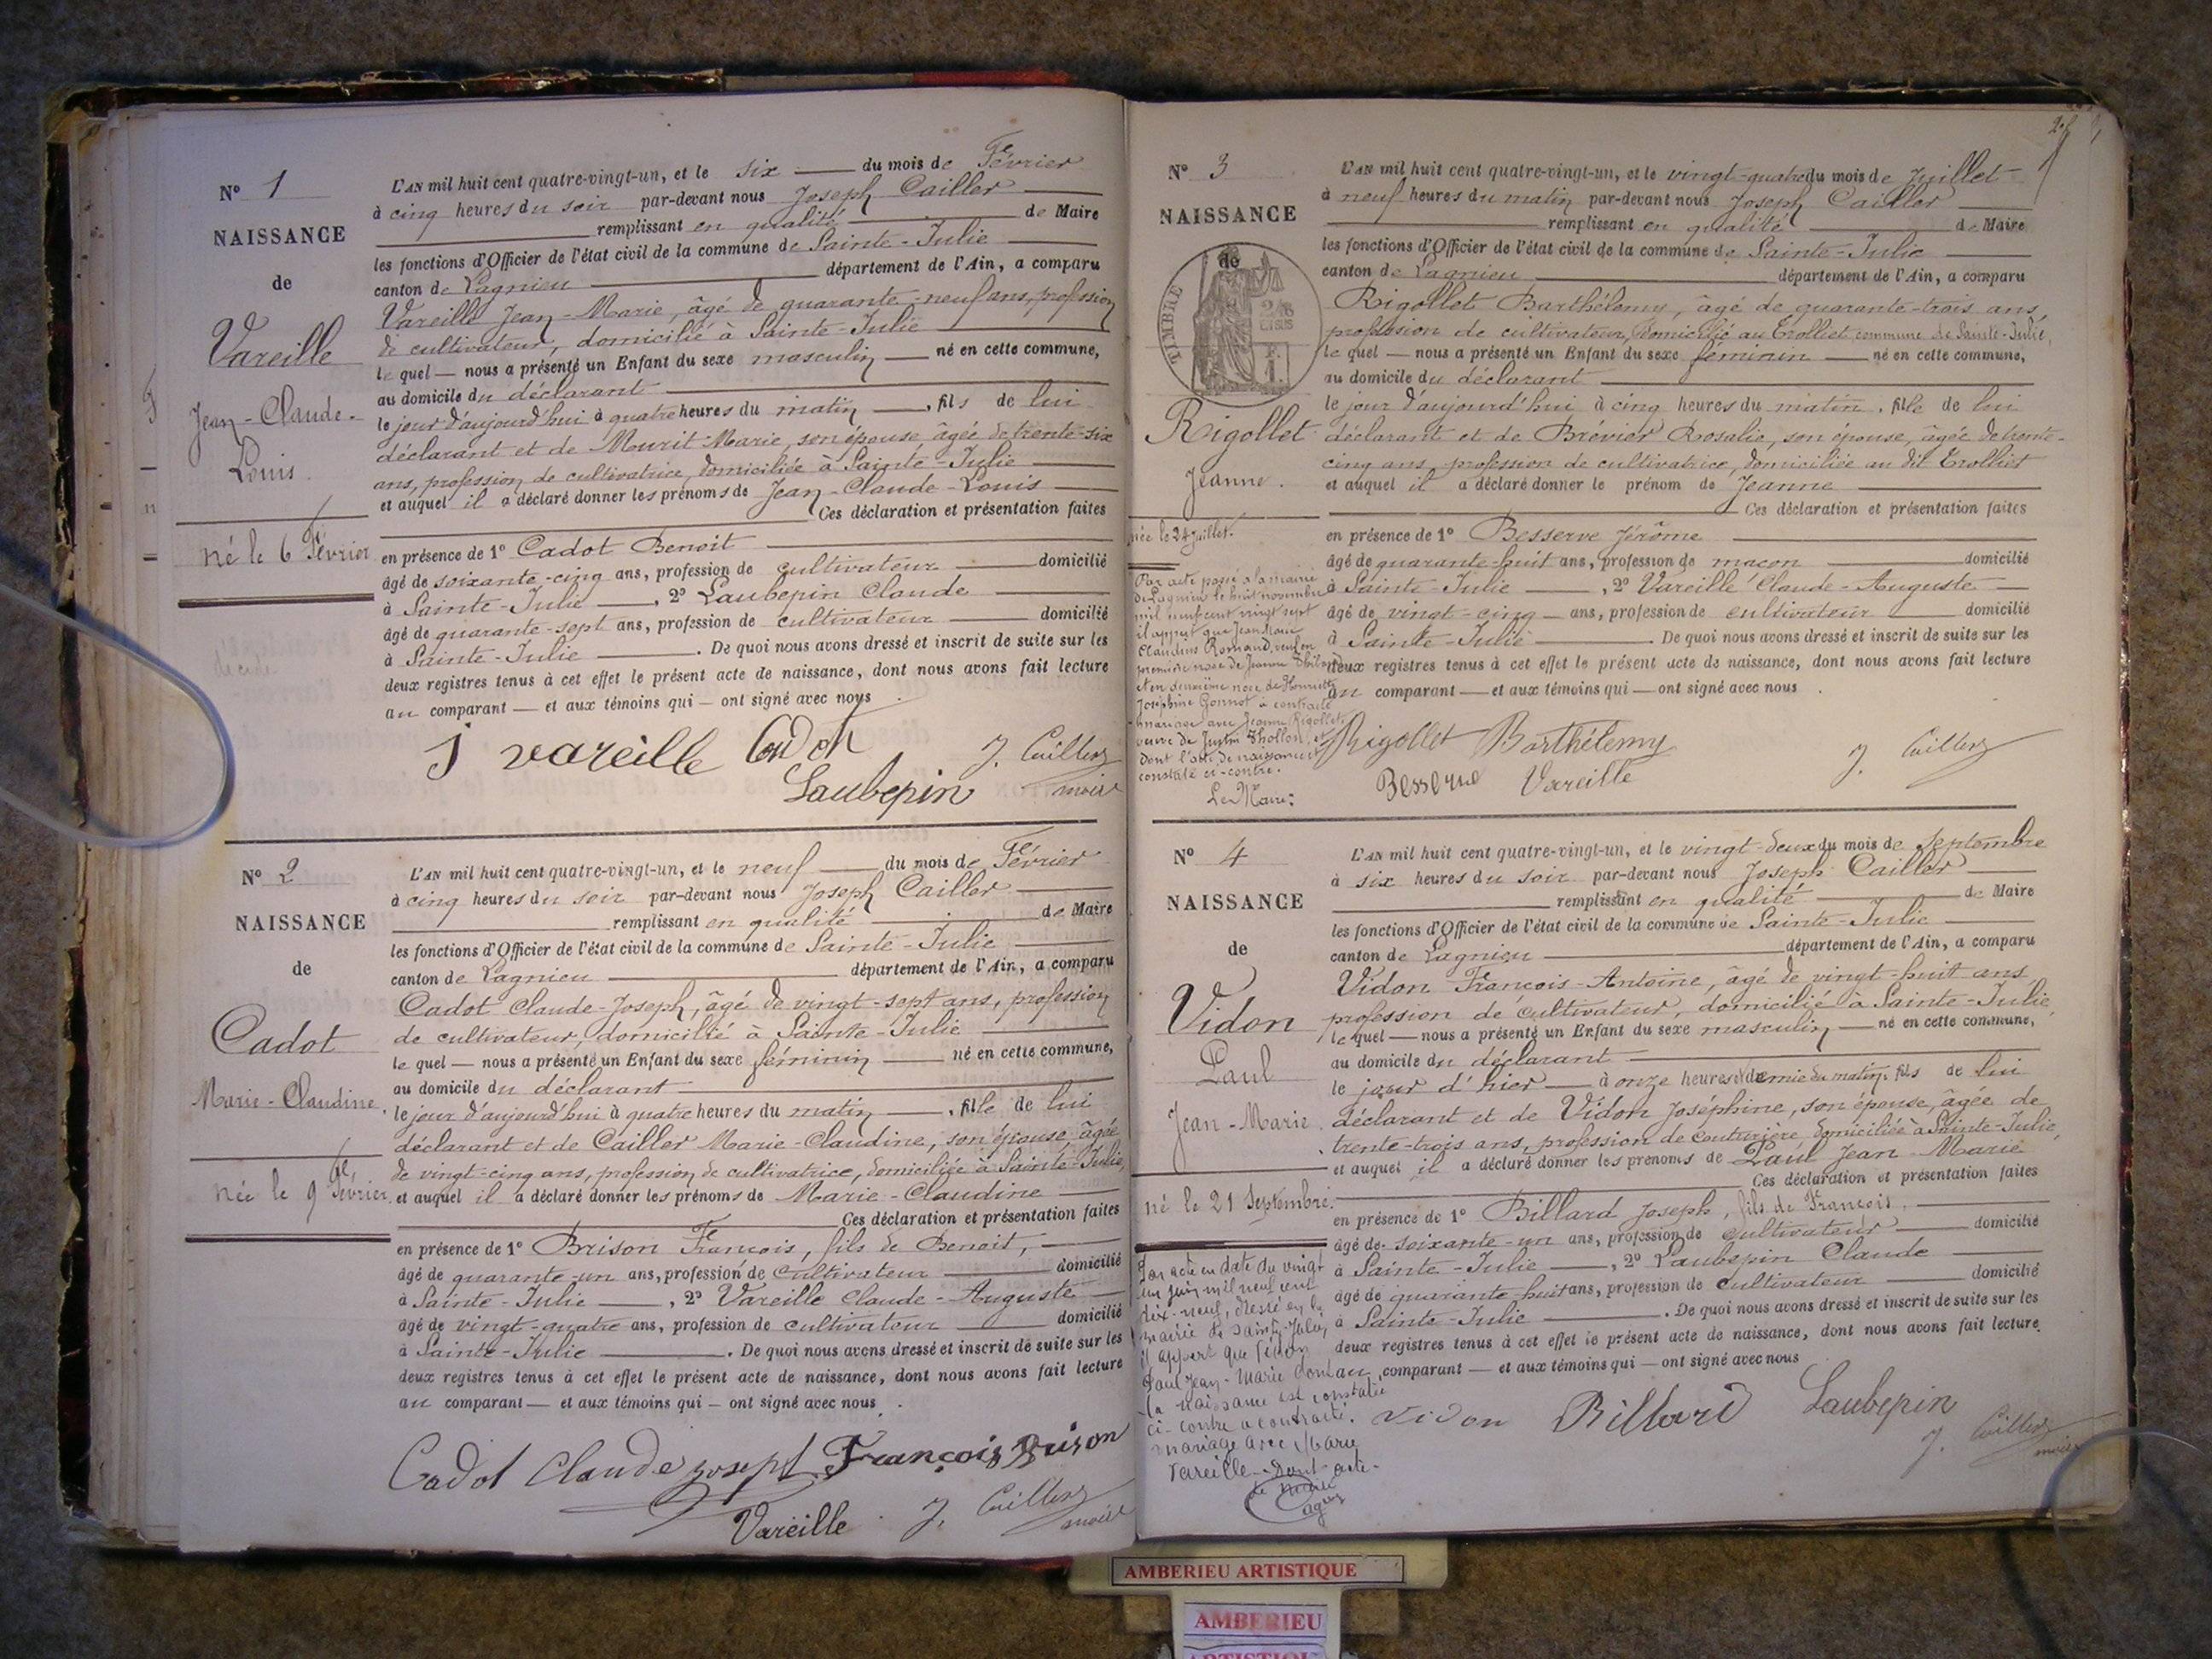 N° 1
NAISSANCE
de
Vareille
Jean-Claude-
Louis
né le 6 Février
décédé
L'AN mil huit cent quatre-vingt-un, et le six du mois de Février
à cinq heures du soir par-devant nous Joseph Cailler
remplissant en qualité de Maire
les fonctions d'Officier de l'état civil de la commune de Sainte-Julie
canton de Lagnieu département de l'Ain, a comparu
Vareille Jean-Marie, âgé de quarante-neuf ans, profession
de cultivateur, domicilié à Sainte-Julie
le quel — nous a présenté un Enfant du sexe masculin — né en cette commune,
au domicile du déclarant
le jour d'aujourd'hui à quatre heures du matin, fils de lui
déclarant et de Mourit Marie, son épouse âgée de trente-six
ans, profession de cultivatrice, domiciliée à Sainte-Julie
et auquel il a déclaré donner les prénoms de Jean-Claude-Louis
Ces déclaration et présentation faites
en présence de 1° Cadot Benoit
âgé de soixante-cinq ans, profession de cultivateur domicilié
à Sainte-Julie, 2° Laubepin Claude
âgé de quarante-sept ans, profession de cultivateur domicilié
à Sainte-Julie. De quoi nous avons dressé et inscrit de suite sur les
deux registres tenus à cet effet le présent acte de naissance, dont nous avons fait lecture
au comparant — et aux témoins qui — ont signé avec nous.
J vareille Cadot
Laubepin J. Cailler
maire
N° 2
NAISSANCE
de
Cadot
Marie-Claudine.
née le 9 Février.
L'AN mil huit cent quatre-vingt-un, et le neuf du mois de Février
à cinq heures du soir par-devant nous Joseph Cailler
remplissant en qualité de Maire
les fonctions d'Officier de l'état civil de la commune de Sainte-Julie
canton de Lagnieu département de l'Ain, a comparu
Cadot Claude-Joseph, âgé de vingt-sept ans, profession
de cultivateur, domicilié à Sainte-Julie
le quel — nous a présenté un Enfant du sexe féminin — né en cette commune,
au domicile du déclarant
le jour d'aujourd'hui à quatre heures du matin, fille de lui
déclarant et de Cailler Marie-Claudine, son épouse, âgée
de vingt-cinq ans, profession de cultivatrice, domiciliée à Sainte-Julie,
et auquel il a déclaré donner les prénoms de Marie-Claudine
Ces déclaration et présentation faites
en présence de 1° Brison François, fils de Benoit,
âgé de quarante-un ans, profession de cultivateur domicilié
à Sainte-Julie, 2° Vareille Claude-Auguste
âgé de vingt-quatre ans, profession de cultivateur domicilié
à Sainte-Julie. De quoi nous avons dressé et inscrit de suite sur les
deux registres tenus à cet effet le présent acte de naissance, dont nous avons fait lecture
au comparant — et aux témoins qui — ont signé avec nous.
Cadot Claude joseph François Brison
Vareille J. Cailler
maire
N° 3
NAISSANCE
de
TIMBRE
Rigollet
Jeanne.
née le 24 Juillet.
Par acte passé à la mairie
de Lagnieu le huit novembre
mil neuf cent vingt sept
il appert que Jean Marie
Claudius Romand, veuf en
première noce de Jeanne
et en deuxième noce de Henriette
Joséphine Gonnot a contracté
mariage avec Jeanne Rigollet
veuve de Justin Thollon, et
dont l'acte de naissance est
constaté ci-contre.
Le Maire:
L'AN mil huit cent quatre-vingt-un, et le vingt-quatre du mois de Juillet
à neuf heures du matin par-devant nous Joseph Cailler
remplissant en qualité de Maire
les fonctions d'Officier de l'état civil de la commune de Sainte-Julie
canton de Lagnieu département de l'Ain, a comparu
Rigollet Barthélemy, âgé de quarante-trois ans,
profession de cultivateur, domicilié au Trolliet commune de Sainte-Julie,
le quel — nous a présenté un Enfant du sexe féminin — né en cette commune,
au domicile du déclarant
le jour d'aujourd'hui à cinq heures du matin, fille de lui
déclarant et de Brévier Rosalie, son épouse, âgée de trente-
cinq ans profession de cultivatrice, domiciliée au dit Trolliet
et auquel il a déclaré donner le prénom de Jeanne
Ces déclaration et présentation faites
en présence de 1° Besserve Jérôme
âgé de quarante-huit ans, profession de maçon domicilié
à Sainte-Julie, 2° Vareille Claude-Auguste
âgé de vingt-cinq ans, profession de cultivateur domicilié
à Sainte-Julie. De quoi nous avons dressé et inscrit de suite sur les
deux registres tenus à cet effet le présent acte de naissance, dont nous avons fait lecture
au comparant — et aux témoins qui — ont signé avec nous.
Rigollet Barthélemy
Besserve Vareille J. Cailler
N° 4
NAISSANCE
de
Vidon
Paul
Jean-Marie.
né le 21 Septembre.
Par acte en date du vingt
un juin mil neuf cent
dix-neuf, dressé en la
mairie de Sainte-Julie,
il appert que Vidon
Paul Jean-Marie dont
la naissance est constatée
ci-contre a contracté
mariage avec Marie
Vareille dont acte.
L'AN mil huit cent quatre-vingt-un, et le vingt-deux du mois de Septembre
à six heures du soir par-devant nous Joseph Cailler
remplissant en qualité de Maire
les fonctions d'Officier de l'état civil de la commune de Sainte-Julie
canton de Lagnieu département de l'Ain, a comparu
Vidon François-Antoine, âgé de vingt-huit ans,
profession de cultivateur, domicilié à Sainte-Julie,
le quel — nous a présenté un Enfant du sexe masculin — né en cette commune,
au domicile du déclarant
le jour d'hier — à onze heures et demie du matin, fils de lui
déclarant et de Vidon Joséphine, son épouse, âgée de
trente-trois ans, profession de couturière, domiciliée à Sainte-Julie,
et auquel il a déclaré donner les prénoms de Paul Jean-Marie
Ces déclaration et présentation faites
en présence de 1° Billard Joseph, fils de François,
âgé de soixante-un ans, profession de cultivateur domicilié
à Sainte-Julie, 2° Laubepin Claude
âgé de quarante-huit ans, profession de cultivateur domicilié
à Sainte-Julie. De quoi nous avons dressé et inscrit de suite sur les
deux registres tenus à cet effet le présent acte de naissance, dont nous avons fait lecture
au comparant — et aux témoins qui — ont signé avec nous
vidon Billard Laubepin
J. Cailler
maire
AMBERIEU ARTISTIQUE
AMBERIEU
ARTISTIQUE